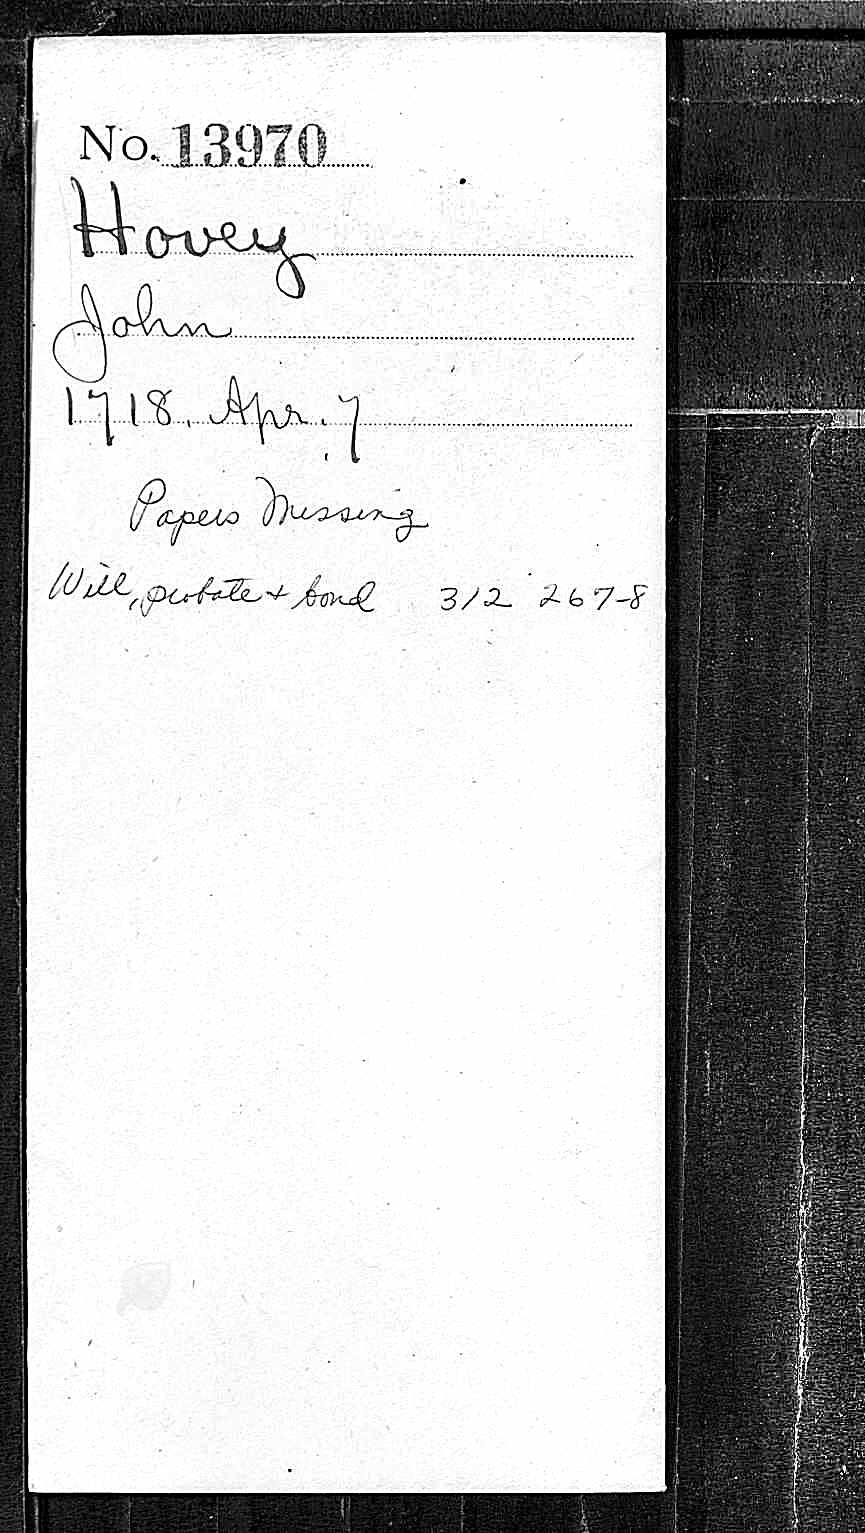 No. 13970
Hovey
John
1718. Apr. 7
Papers Missing
Will, probate + bond 312 267-8